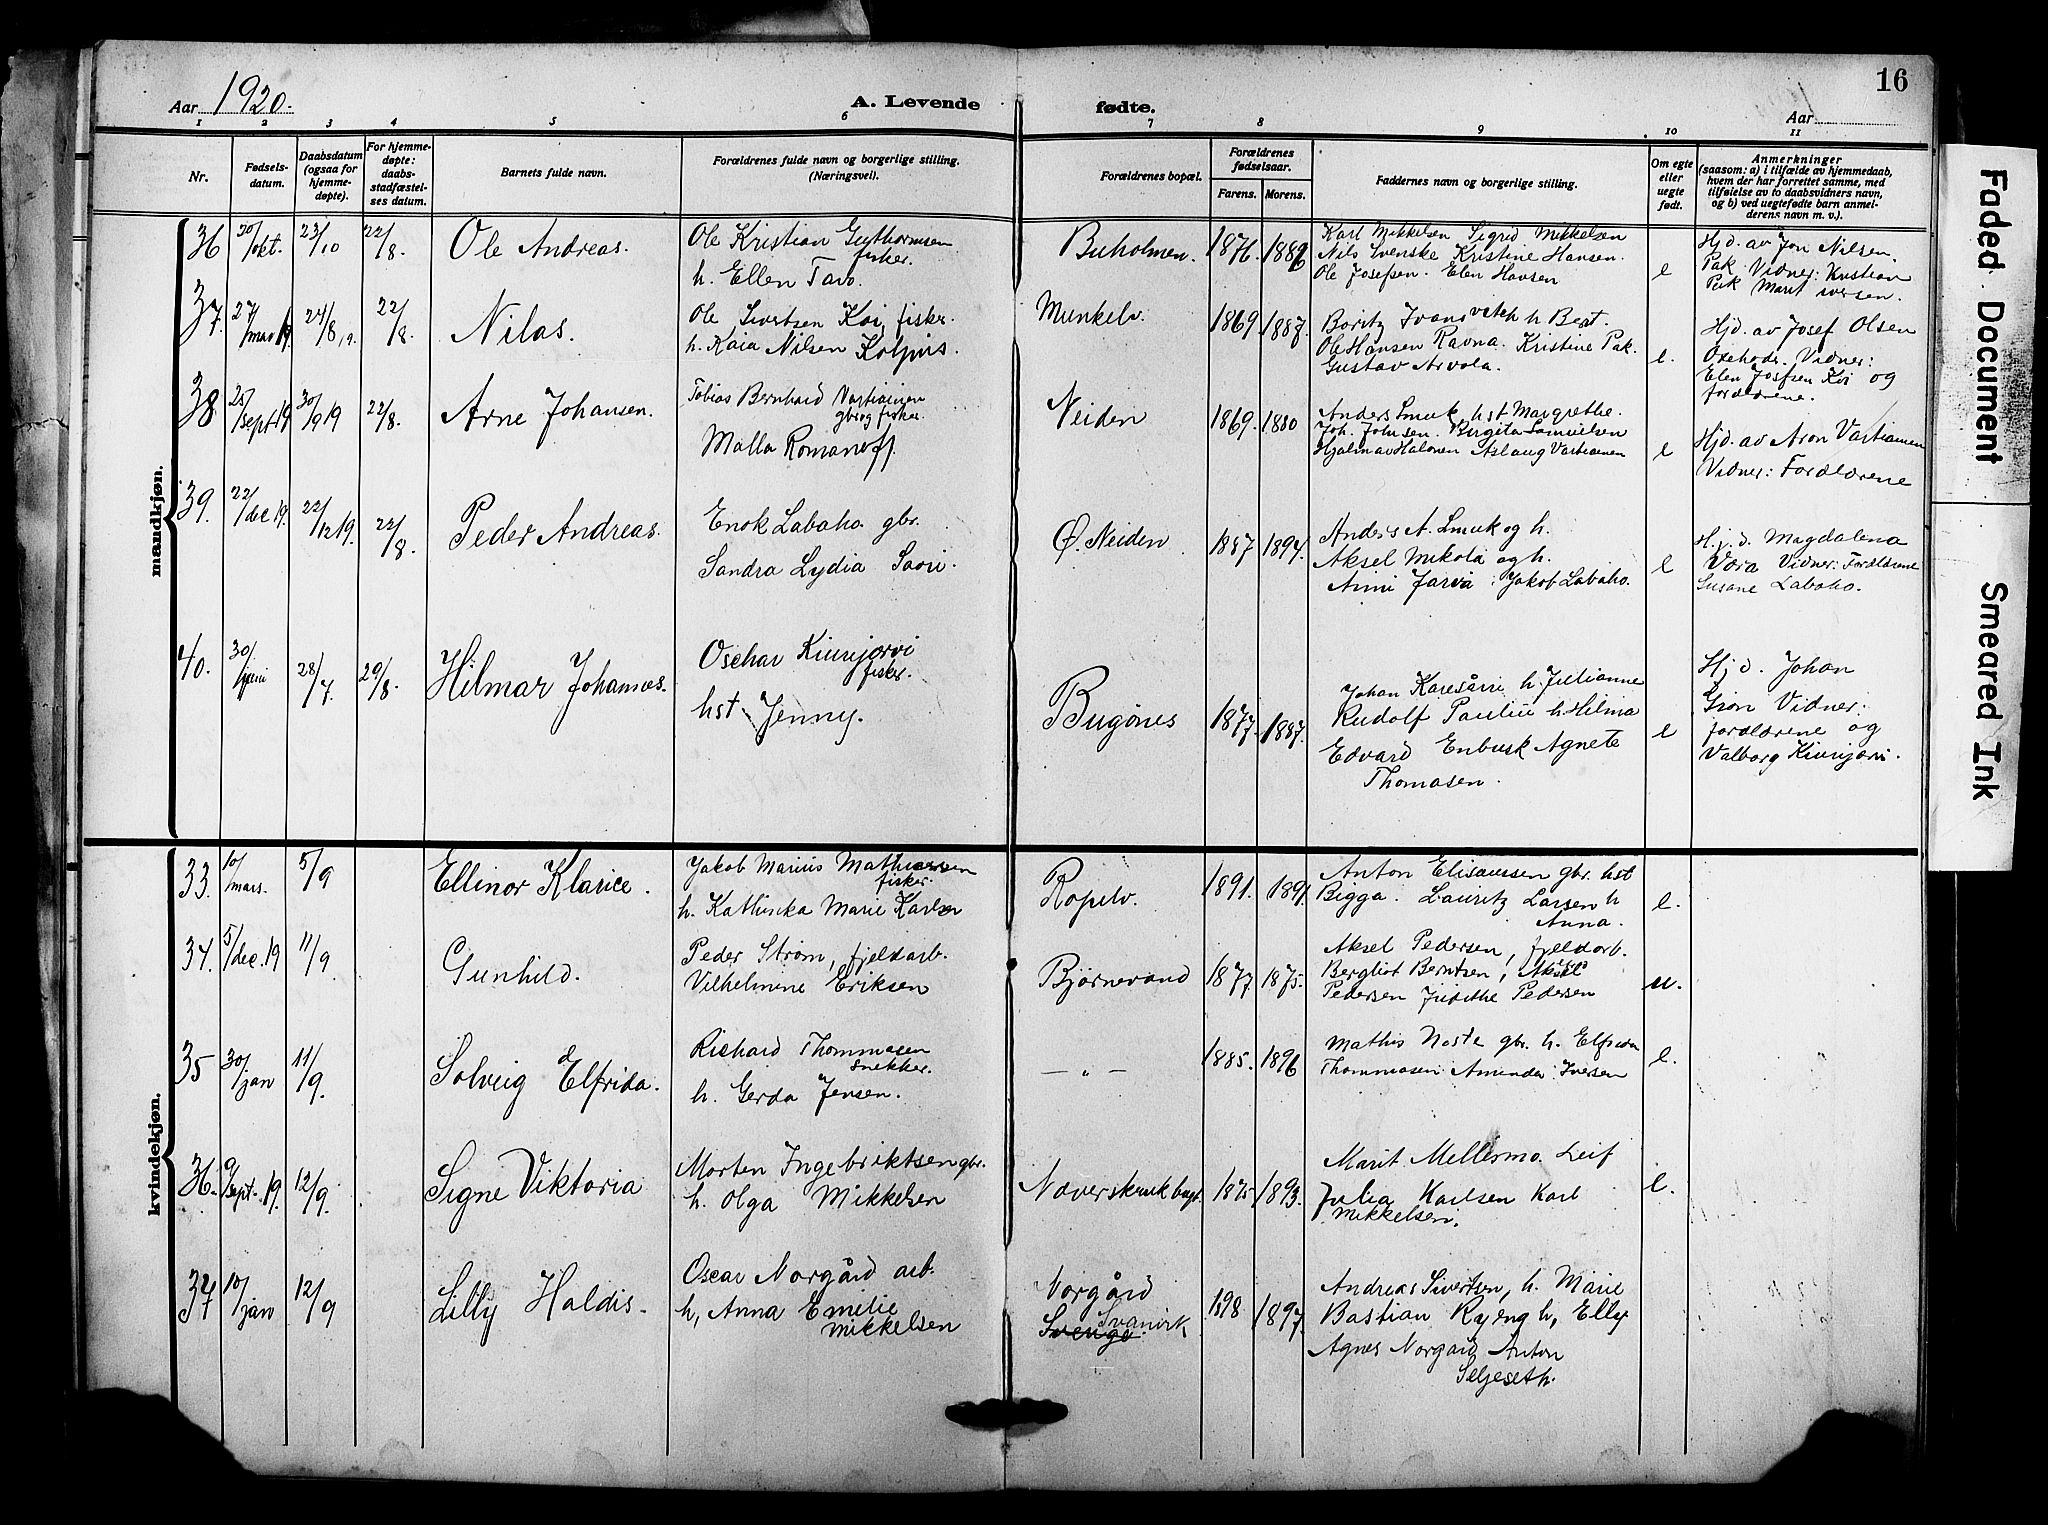 16
Aar 1920. A. Levende fødte. Aar
1 2 3 4 5 6 7 8 9 10 11
Nr.
Fødsels-
datum.
Daabsdatum
(ogsaa for
hjemme-
døpte).
For hjemme-
døpte:
daabs-
stadfæstel-
ses datum.
Barnets fulde navn.
Forældrenes fulde navn og borgerlige stilling.
(Næringsvei).
Forældrenes bopæl.
Forældrenes
fødselsaar.
Farens. Morens.
Faddernes navn og borgerlige stilling.
Om egte
eller
uegte
født.
Anmerkninger
(saasom: a) i tilfælde av hjemmedaab,
hvem der har forrettet samme, med
tilføielse av to daabsvidners navn,
og b) ved uegtefødte barn anmel-
derens navn m. v.).
mandkjøn.
36 20/okt. 23/10 22/8. Ole Andreas.
Ole Kristian Guthormsen
fisker.
h. Ellen Tavo.
Buholmen. 1876. 1886
Karl Mikkelsen Sigrid Mikkelsen
Nils Svenske Kristine Hansen.
Ole Josefsen. Elen Hansen
e
Hjd. av Jon Nilsen.
Pak Vidner: Kristian
Pak Marit Iversen.
37. 27/mar 19. 24/8 19. 22/8. Nilas.
Ole Sivertsen Koi, fisker.
h. Kaia Nilsen Kolpus.
Munkelv. 1869. 1887.
Boritz Ivanovitch h Berit.
Ole Hansen Ravna. Kristine Pak.
Gustav Arvola.
e.
Hjd. av Josef Olsen
Vidner:
Elen Josefsen Koi og
forældrene.
38 25/sept 19 30/9 19 22/8. Arne Johansen.
Tobias Bernhard Vartiainen
gbr og fisker
Malla Romanoff.
Neiden 1869. 1880
Anders Smuk, hst Margrethe.
Joh. Johnsen. Birgita Samuelsen
Hjalmar Halonen Aslaug Vartiainen
e
Hjd. av Aron Vartiainen
Vidner: Forældrene
39. 22/dec 19. 22/12 19. 22/8. Peder Andreas.
Enok Labaho. gbr.
Sandra Lydia Saori.
Ø. Neiden 1887 1894.
Anders A. Smuk og h.
Aksel Mikola og h.
Anni Jarva. Jakob Labaho.
e
H.j.d. Magdalena
Vara Vidner: Forældrene
Susane Labaho.
40. 30/juni 28/7. 29/8. Hilmar Johannes.
Oschar Kiurijarvi
fisker.
hst Jenny.
Bugønes 1877. 1887.
Johan Karesårri h Julianne
Rudolf Paulii h. Hilma
Edvard Enbusk Agnete
Thomasen.
e
Hjd. Johan
Gion Vidner:
forældrene og
Valborg Kiurijarvi.
kvindekjøn.
33. 10/mars. 5/9 Ellinor Klarice.
Jakob Marius Mathiassen
fisker.
h. Kathinka Marie Karlsen
Ropelv. 1891. 1891
Anton Elisæussen gbr. hst
Bigga. Lauritz Larsen h
Anna.
e.
34. 5/dec. 19 11/9. Gunhild.
Peder Strøm, fjeldarb.
Vilhelmine Eriksen
Bjørnevand 1877 1875.
Aksel Pedersen, fjeldarb.
Bergliot Berntsen, Aksel
Pedersen Judithe Pedersen
u.
35 30/jan 11/9. Solveig Elfrida.
Richard Thommasen
snekker.
h. Gerda Jensen.
— „ — 1885. 1896
Mathis Noste gbr. h. Elfrida
Thommasen Amanda Iversen
e.
36. 9/sept. 19. 12/9. Signe Viktoria
Morten Ingebriktsen gbr.
h. Olga Mikkelsen
Noverskrukbugt. 1875 1893.
Marit Mellesmo. Leif
Julia Karlsen Karl
Mikkelsen.
e.
37 10/jan 12/9 Lilly Haldis.
Oscar Norgård arb.
h, Anna Emilie
Mikkelsen
Norgård
Svanvik
1898 1897.
Andreas Sivertsen, h. Marie
Bastian Ryeng h, Elly
Agnes Norgård Anton
Seljeseth.
Faded Document
Smeared Ink